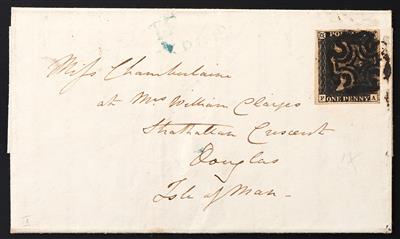 Miss Chamberlaine
at Mrs William Clarges
Strathallan Crescent
Douglas
Isle of Man -
PO
ONE PENNY A
1X